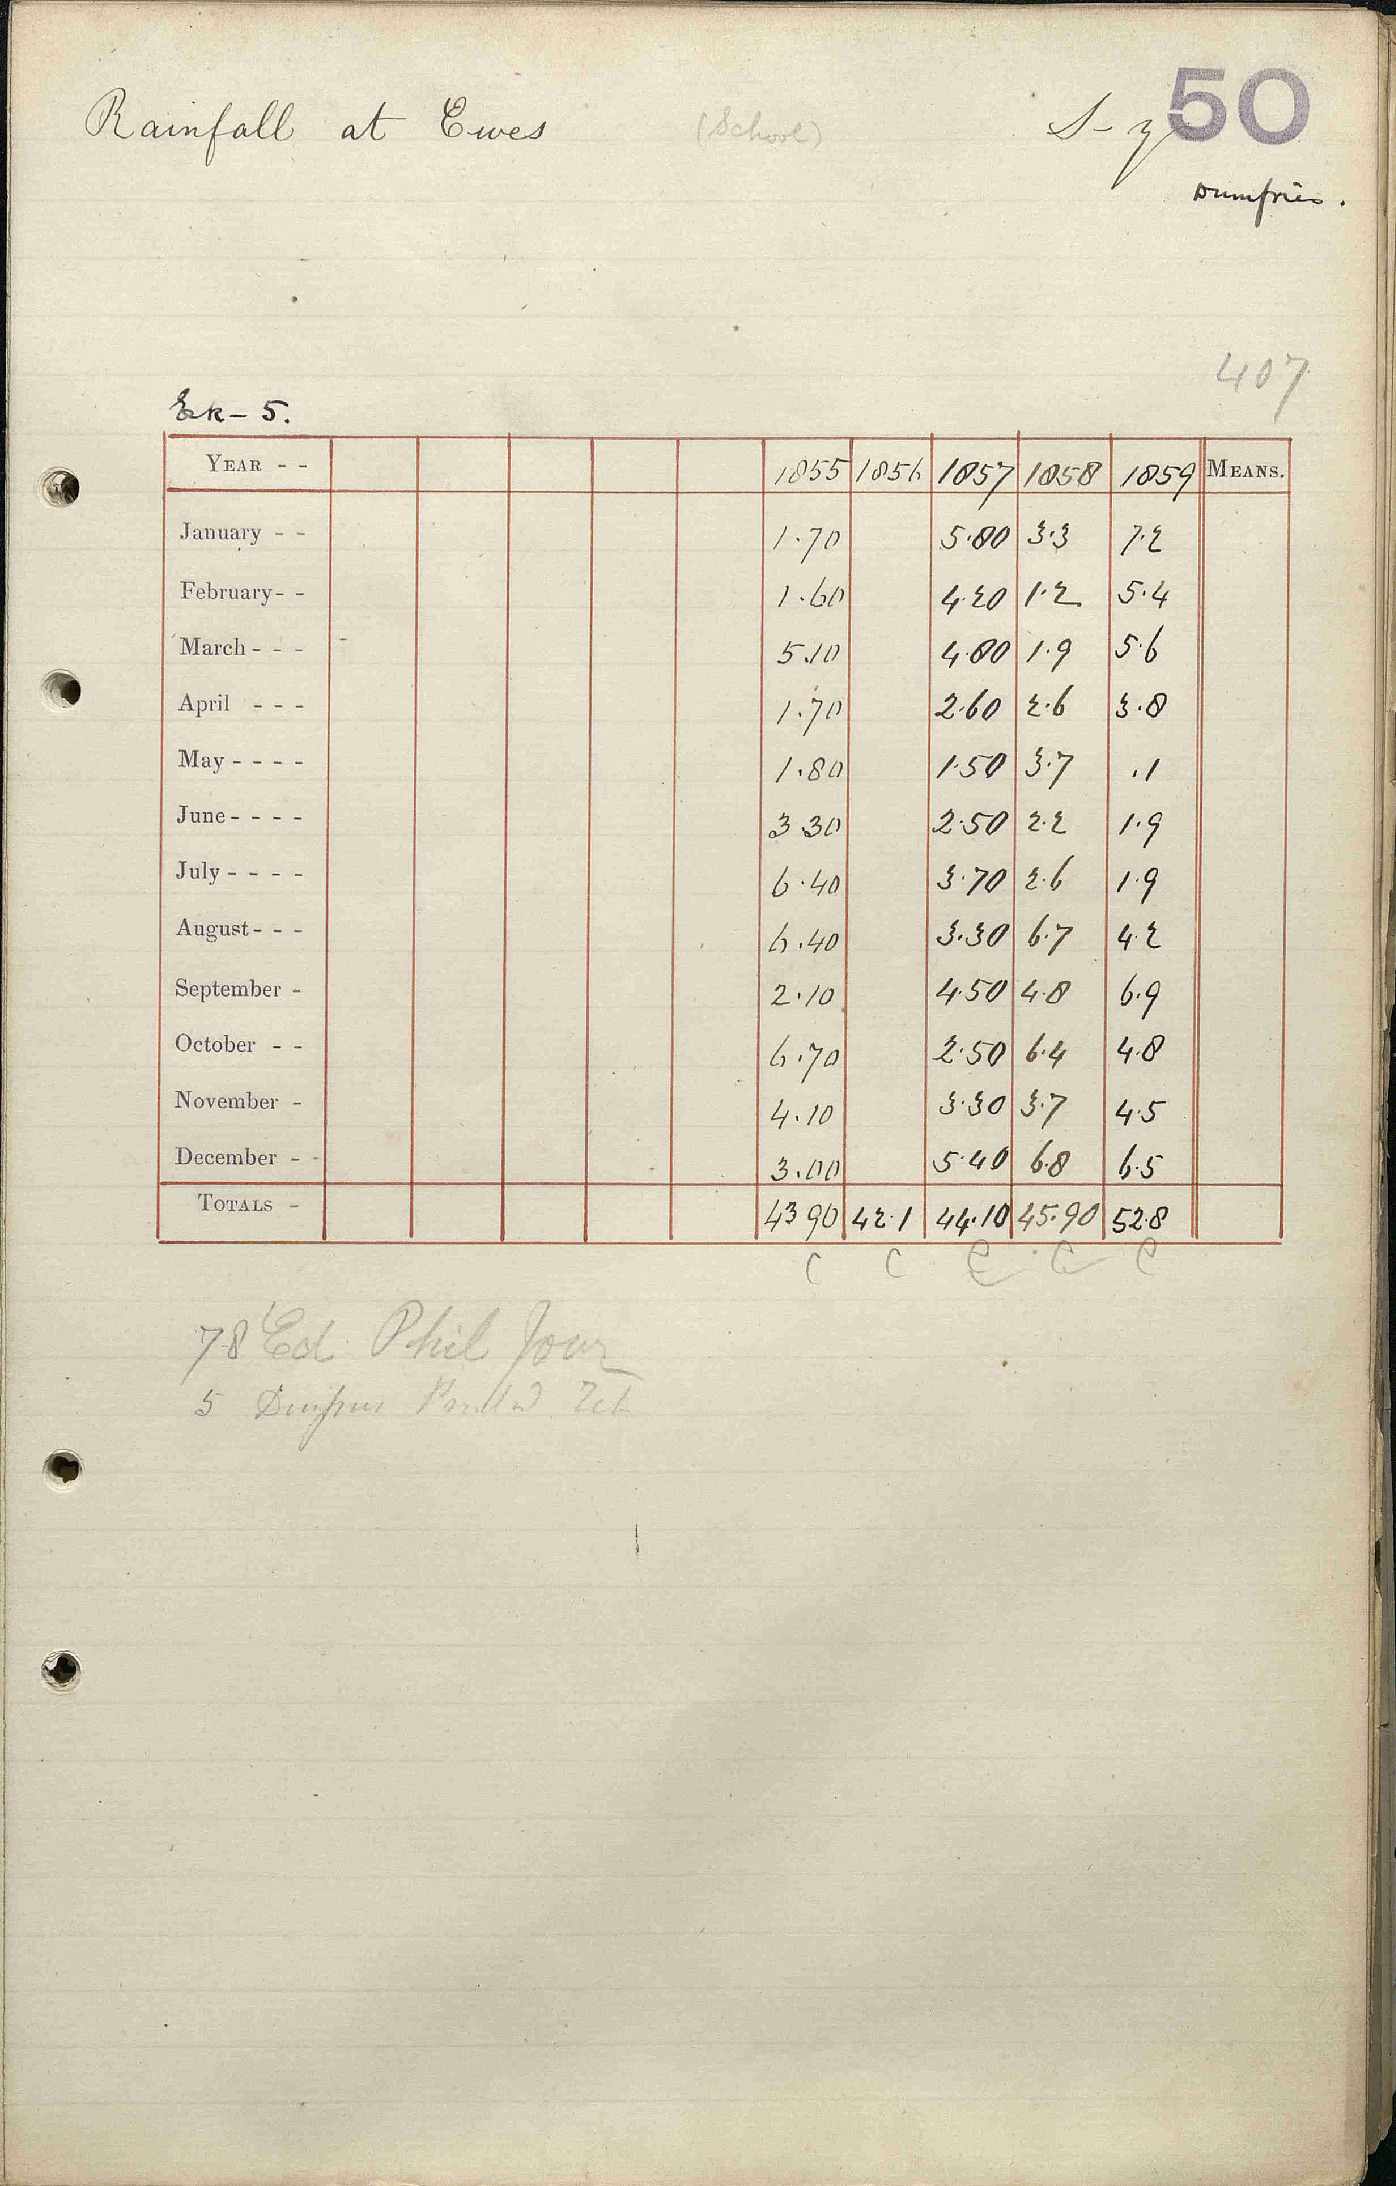 50
Rainfall at Ewes (School) S-z
Dumfries.
407
Ek-5.
YEAR - - 1855 1856 1857 1858 1859 MEANS.
January - - 1.70 5.80 3.3 7.2
February - - 1.60 4.20 1.2 5.4
March - - - 5.10 4.80 1.9 5.6
April - - - 1.70 2.60 2.6 3.8
May - - - - 1.80 1.50 3.7 .1
June - - - - 3 30 2.50 2.2 1.9
July - - - - 6.40 3.70 2.6 1.9
August - - - 6.40 3.30 6.7 4.2
September - 2.10 4.50 4.8 6.9
October - - 6.70 2.50 6.4 4.8
November - 4.10 3.30 3.7 4.5
December - - 3.00 5.40 6.8 6.5
TOTALS - 43 90 42.1 44.10 45.90 52.8
C C C C C
78 Ed Phil Jour
5